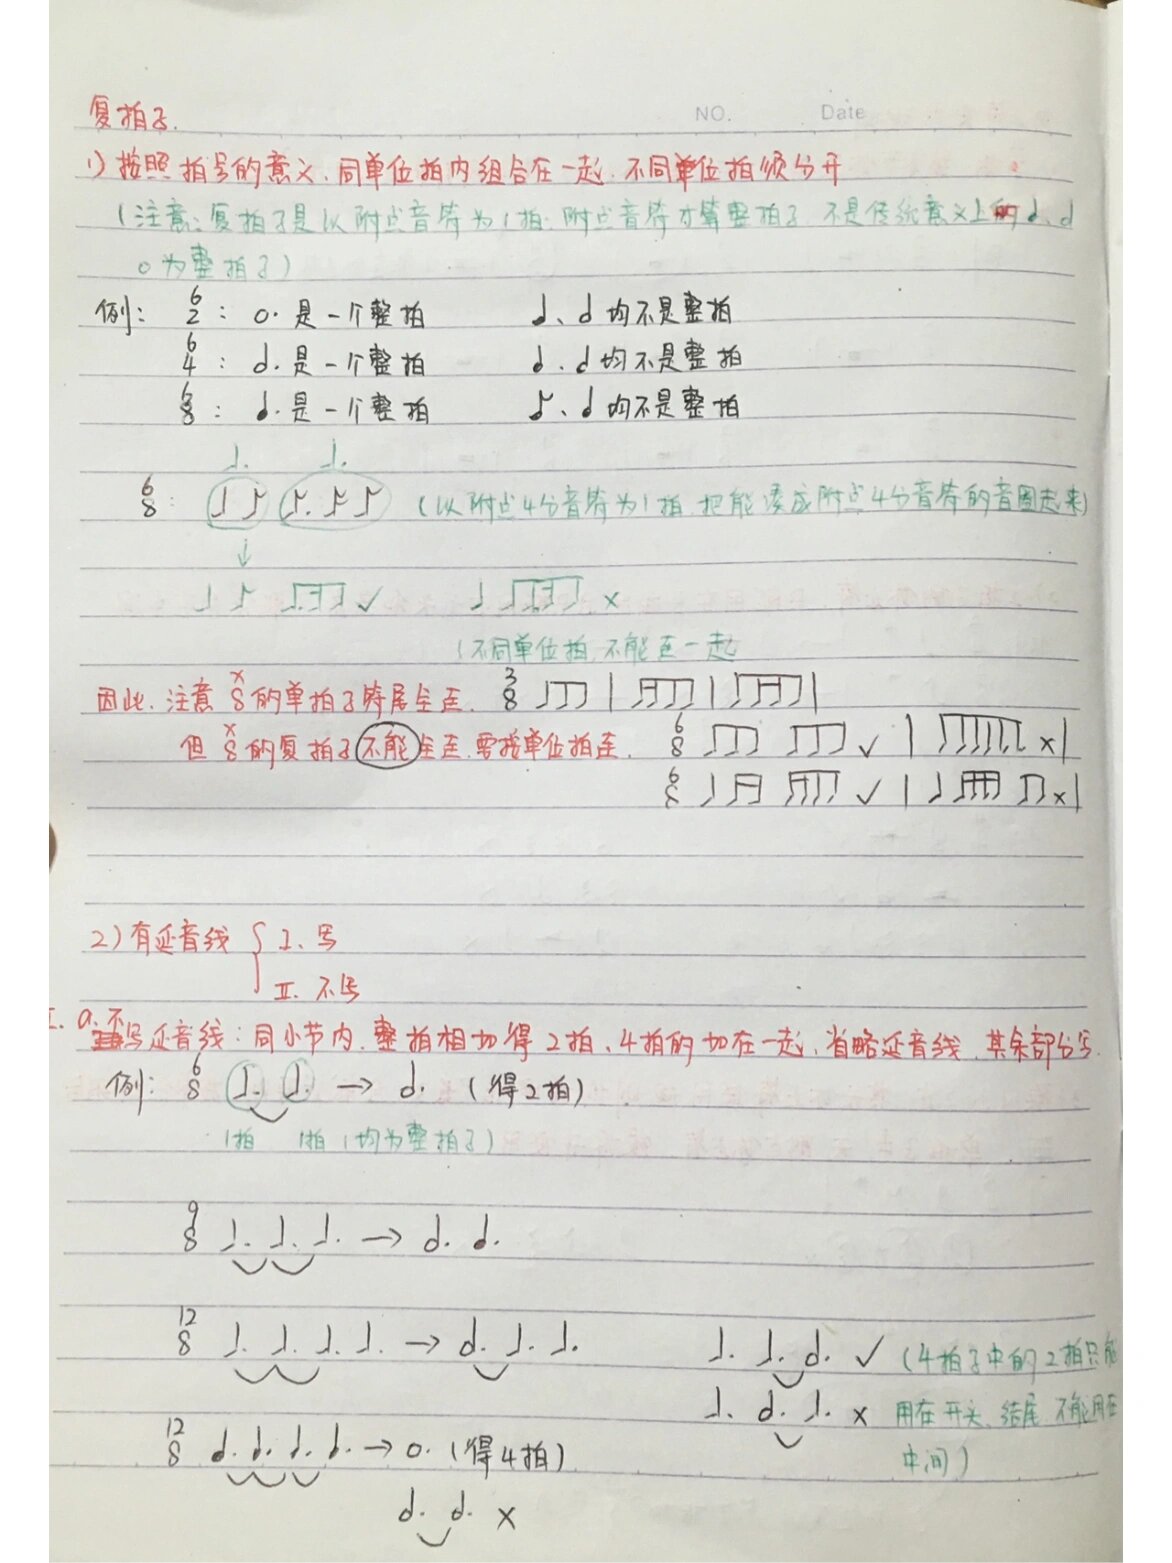 NO. Date
复拍子.
1) 按照拍号的意义、同单位拍内组合在一起,不同单位拍须分开
(注意:复拍子是以附点音符为1拍.附点音符才算整拍子,不是传统意义上的♩、𝅗𝅥
𝅝为整拍子)
例: 6/2 : 𝅝. 是一个整拍 ♩、𝅗𝅥 均不是整拍
6/4 : 𝅗𝅥. 是一个整拍 ♩、𝅗𝅥 均不是整拍
6/8 : ♩. 是一个整拍 ♪、♩ 均不是整拍
♩. ♩.
6/8 : ♩ ♪ ♪. ♬ ♪ (以附点4分音符为1拍,把能凑成附点4分音符的音圈起来)
↓
✓ ×
(不同单位拍,不能连一起
因此,注意 x/8 的单拍子符尾全连. 3/8
但 x/8 的复拍子不能全连.要按单位拍连. 6/8 ✓ | × |
6/8 ✓ | × |
2) 有延音线 { I、写
II. 不写
I. a. 不写延音线:同小节内.整拍相切得2拍、4拍的切在一起、省略延音线,其余部分写.
例: 6/8 ♩. ♩. → 𝅗𝅥. (得2拍)
1拍 1拍 (均为整拍子)
9/8 ♩. ♩. ♩. → 𝅗𝅥. ♩.
12/8 ♩. ♩. ♩. ♩. → 𝅗𝅥. ♩. ♩. ♩. ♩. 𝅗𝅥. ✓ (4拍子中的2拍只能
♩. 𝅗𝅥. ♩. × 用在开头、结尾,不能用在
12/8 ♩. ♩. ♩. ♩. → 𝅝. (得4拍) 中间)
𝅗𝅥. 𝅗𝅥. ×